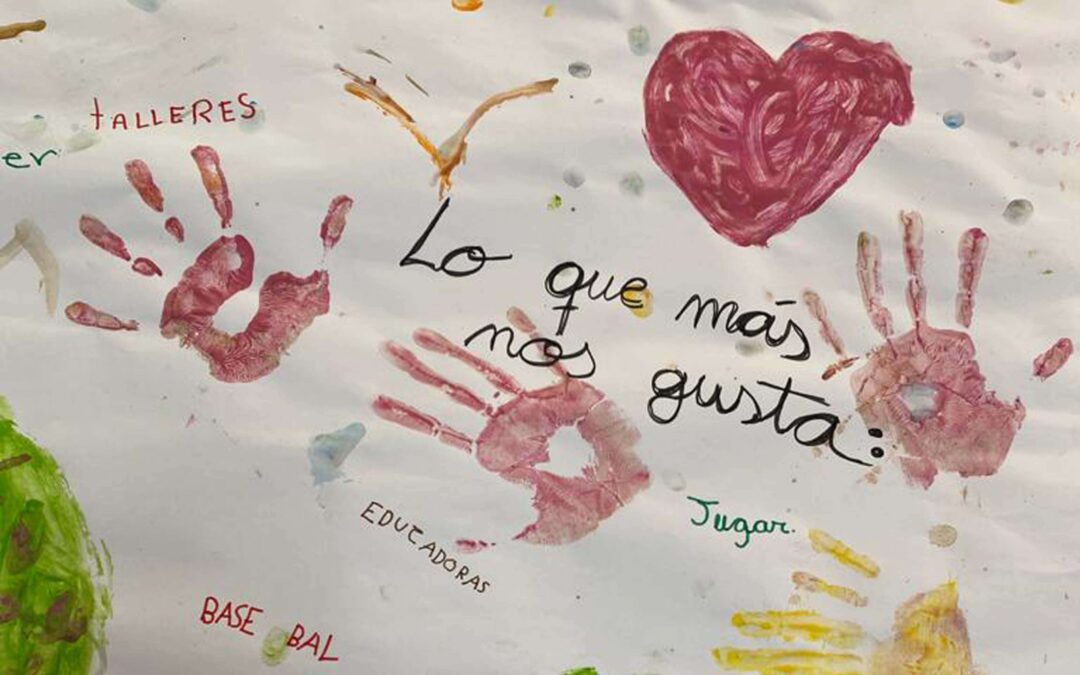 tALLERES
er
Lo que más
nos gusta:
Jugar.
EDUCADORAS
BASE BAL